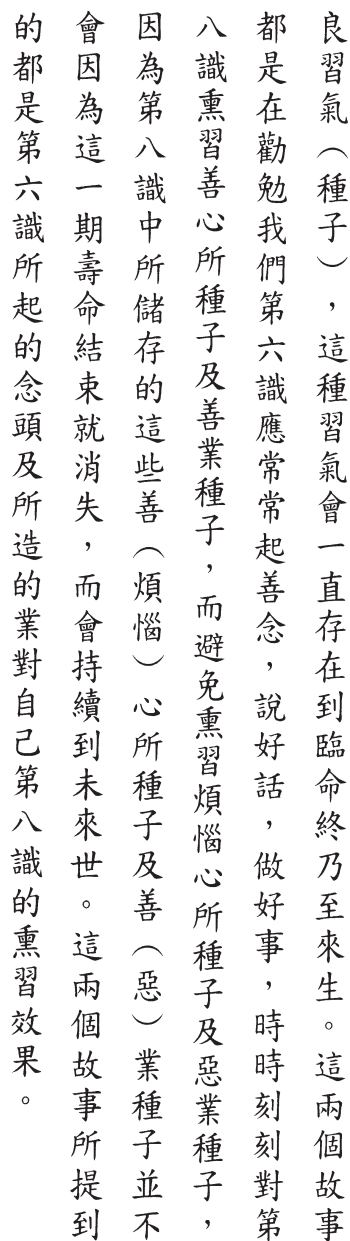 良習氣（種子），這種習氣會一直存在到臨命終乃至來生。這兩個故事
都是在勸勉我們第六識應常常起善念，說好話，做好事，時時刻刻對第
八識熏習善心所種子及善業種子，而避免熏習煩惱心所種子及惡業種子，
因為第八識中所儲存的這些善（煩惱）心所種子及善（惡）業種子並不
會因為這一期壽命結束就消失，而會持續到未來世。這兩個故事所提到
的都是第六識所起的念頭及所造的業對自己第八識的熏習效果。